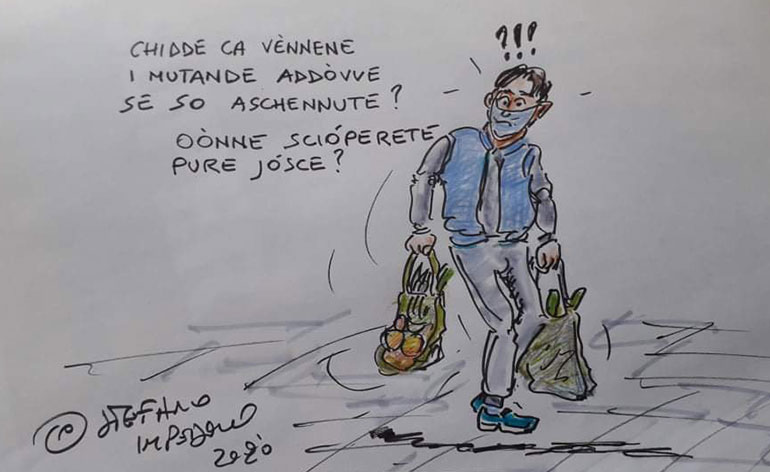 CHIDDE CA VÈNNENE
I MUTANDE ADDÒVVE
SE SO ASCHENNUTE?
OÒNNE SCIÓPERETE
PURE JÓSCE?
?!!!
© STEFANO
2020